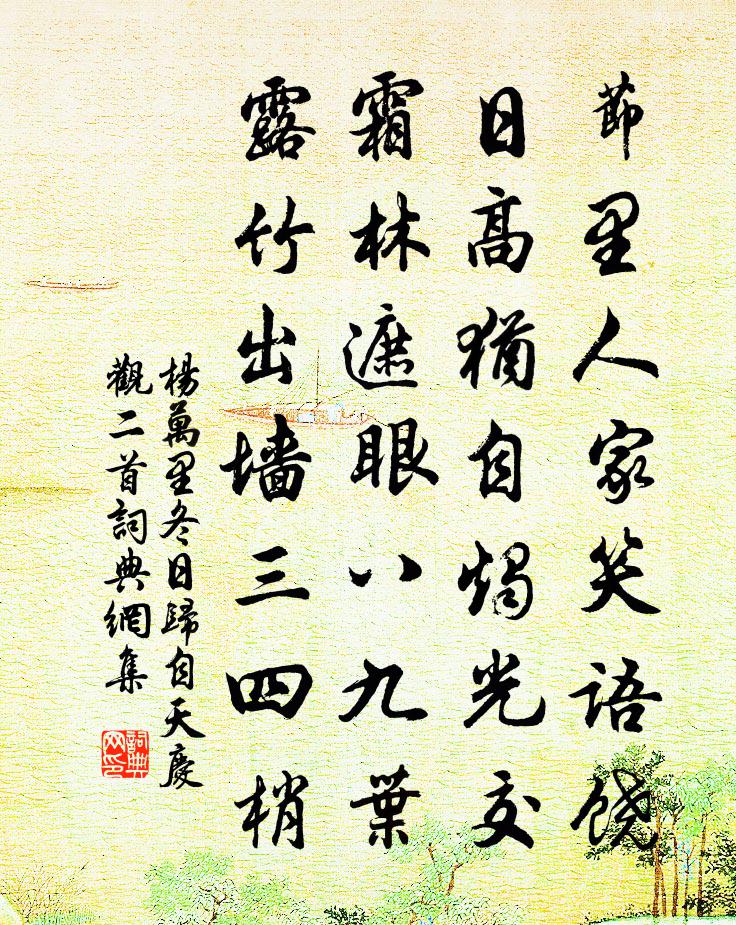 節里人家笑語饒
日高猶自燭光交
霜林遮眼八九葉
露竹出墙三四梢
楊萬里冬日歸自天慶
觀二首詞典網集
詞典网印